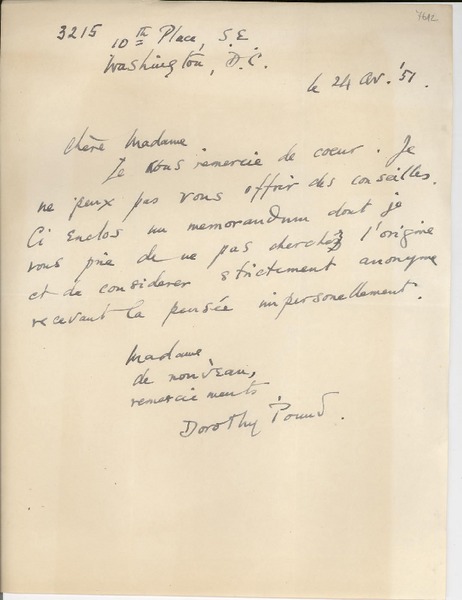 3215
10th Place, S.E
Washington, D.C.
le 24 av. '51.
Chère Madame
Je vous remercie de coeur. Je
ne peux pas vous offrir des conseilles.
Ci Enclos un memorandum dont je
vous prie de ne pas cherchez l'origine
et de considerer strictement anonyme
recevant la pensée impersonellement.
Madame,
de nouveau,
remerciements
Dorothy Pound.